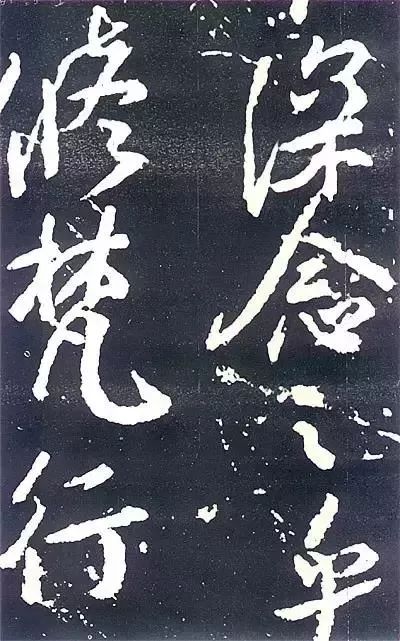 深念之早
修梵行